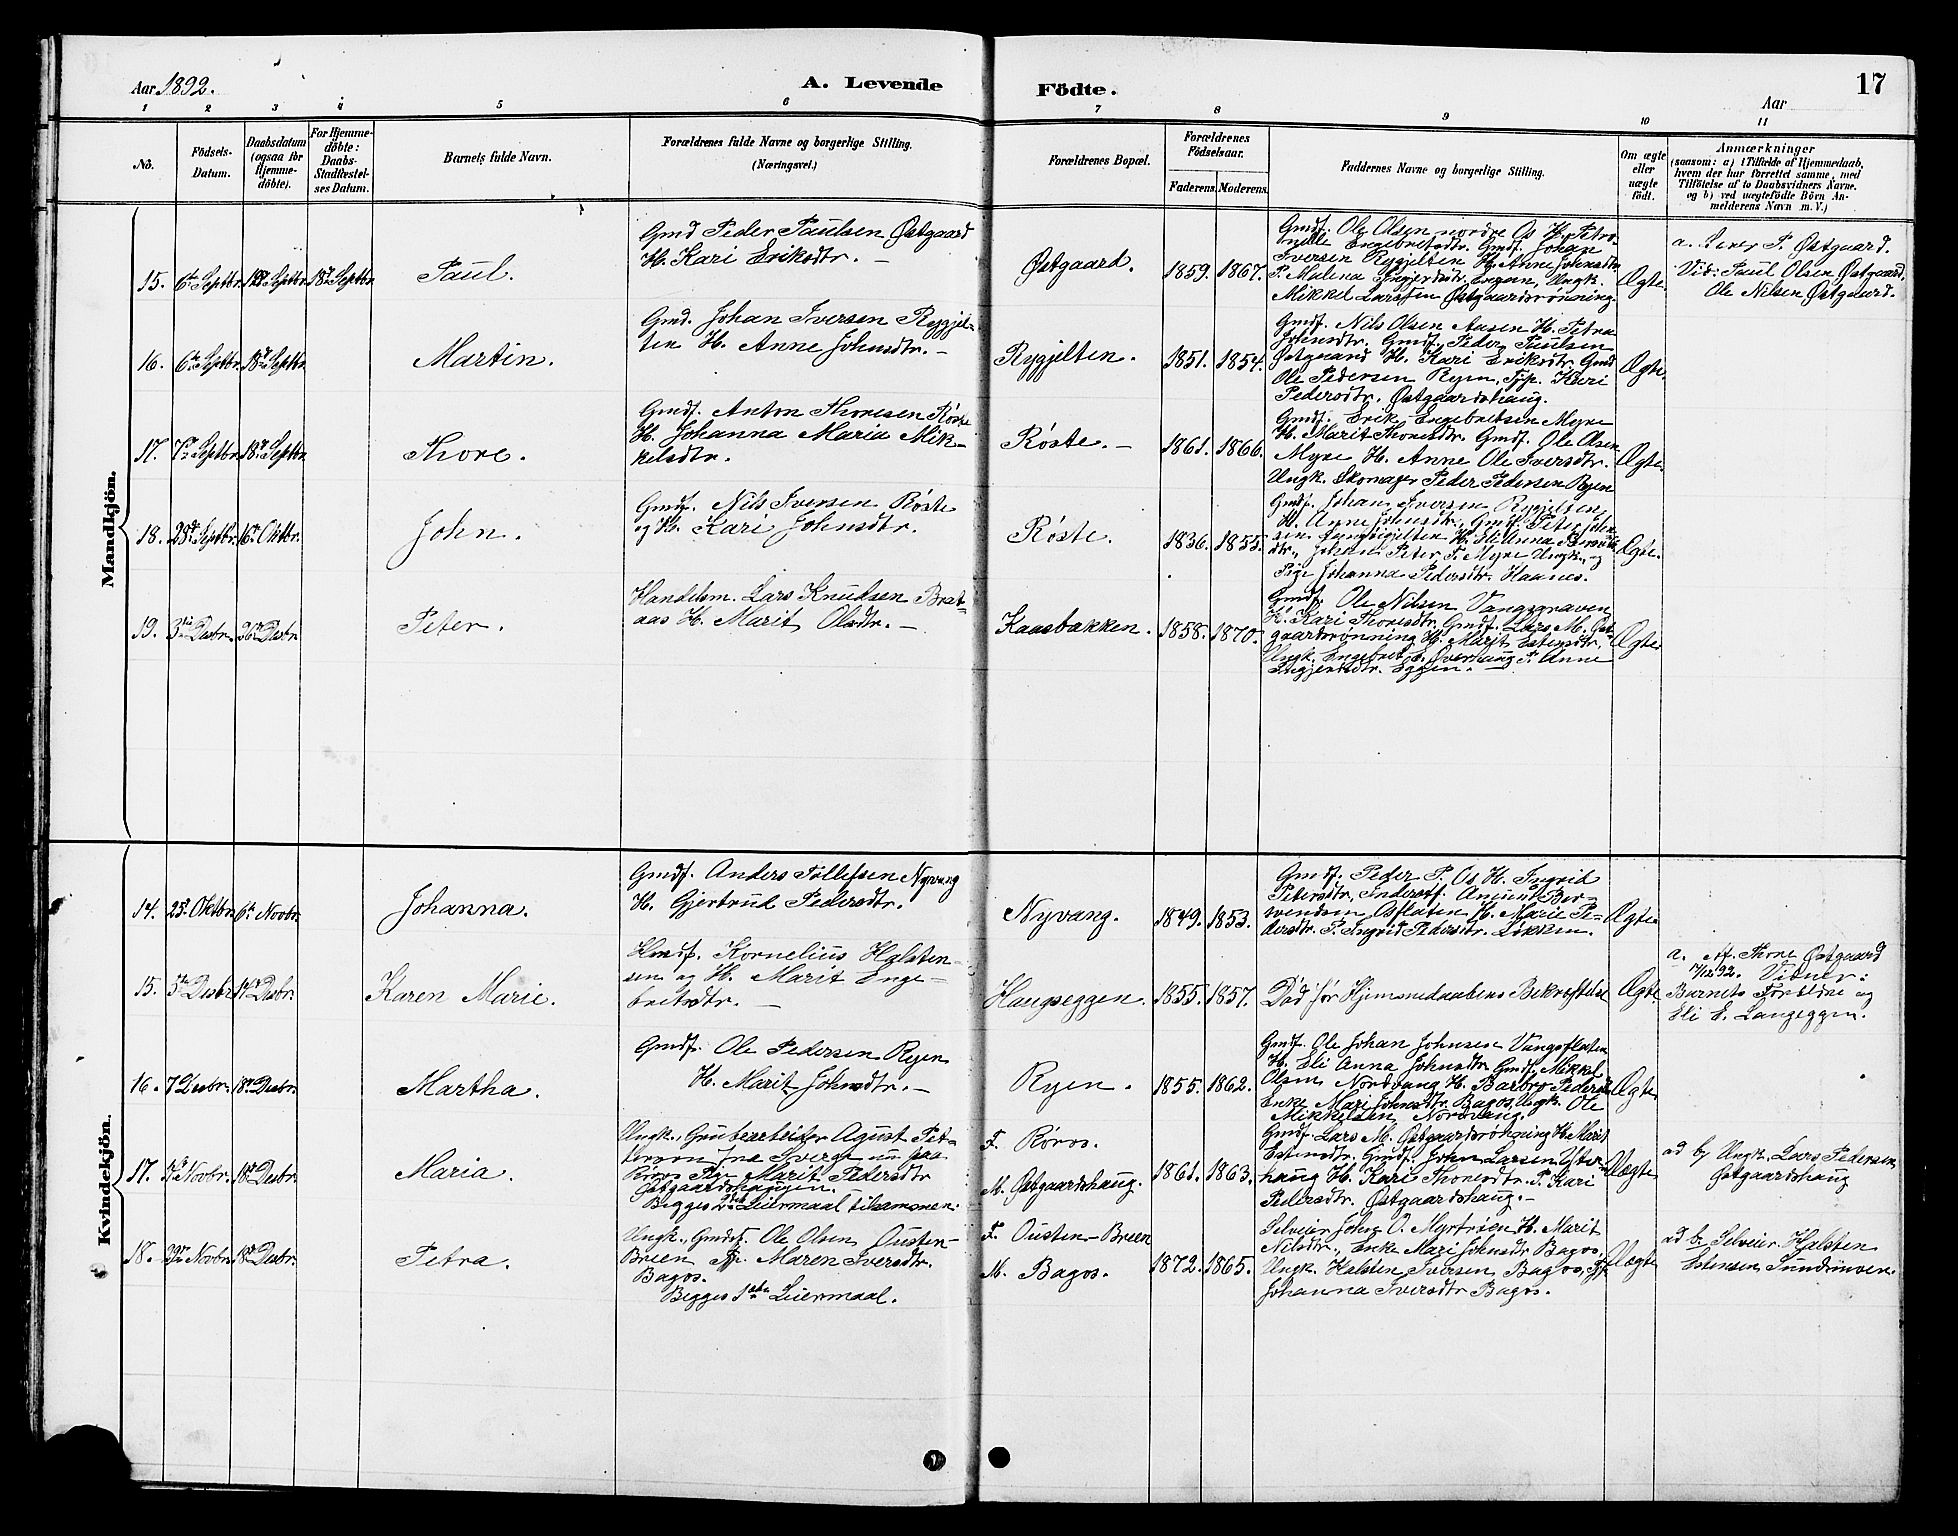 Aar 1892.
A. Levende
Födte.
17
Aar
1 2 3 4 5 6 7 8 9 10 11
No.
Födsels-
Datum.
Daabsdatum
(ogsaa for
Hjemme-
döbte).
For Hjemme-
döbte:
Daabs-
Stadfæstel-
ses Datum.
Barnets fulde Navn.
Forældrenes fulde Navne og borgerlige Stilling.
(Næringsvei.)
Forældrenes Bopæl.
Forældrenes
Födselsaar.
Faderens. Moderens.
Faddernes Navne og borgerlige Stilling.
Om ægte
eller
uægte
födt.
Anmærkninger
(saasom: a) i Tilfælde af Hjemmedaab,
hvem der har forrettet samme, med
Tilföielse af to Daabsvidners Navne,
og b) ved uægtefödte Börn An-
melderens Navn m. V.)
Mandkjön.
15. 6te Septbr. Septbr. 18de Septbr.
Paul.
Gmd Peder Paulsen Østgaard
H. Kari Eriksdtr. —
Østgaard.
1859. 1867.
Gmdf. Ole Olsen nordre Os H. Petro-
nelle Engebretsdtr. Gmdf. Johan
Iversen Rygjelten H. Anne Johnsdtr.
P. Malena Eggen, Ungk.
Mikkel Larssen Østgaardsrønning
Ægte
a. Lærer P. Østgaard.
Vid: Paul Olsen Østgaard,
Ole Nilsen Østgaard.
16. 6te Septbr. 18de Septbr.
Martin.
Gmd. Johan Iversen Rygjel-
ten H. Anne Johnsdtr. —
Rygjelten.
1851. 1854.
Gmdf. Nils Olsen Aasen H. Petra
Johnsdtr. Gmdf. Peder Paulsen
Østgaard H. Kari Eriksdtr. Gmd
Ole Pedersen Ryen, Kari
Pedersdtr. Østgaardshaug.
Ægte.
17. 7de Septbr. 18de Septbr.
Thore.
Gmdf. Anton Thoresen Røste
H. Johanna Maria Mik-
kelsdtr.
Røste. —
1861. 1866.
Gmdf. Erik Engebretsen Myre
H. Marit Thoresdtr. Gmdf. Ole Olsen
Myre H. Anne Ole Iversdtr.
Ungk. Skomager Peder Pedersen Ryen
Ægte.
18. 28de Septbr. 16de Oktbr.
John.
Gmdf. Nils Iversen Røste
og H. Kari Johnsdtr.
Røste.
1836. 1855.
Gmdf. Johan Iversen Rygjelten
H. Anne Johnsdtr., Gmdf. Peter John-
sen H. Eli Anna
dtr., Johan Peter P. Myre Ungk., og
Pige Johanna Pedersdtr. Haanes.
Ægte.
19. 3die Desbr. 26de Desbr.
Peter.
Handelsm. Lars Knudsen Brat-
aas H. Marit Olsdtr. —
Kaasbakken.
1858. 1870.
Gmdf. Ole Nilsen Vangsgraven
H. Kari Thoresdtr. Gmdf. Lars M. Øst-
gaardsrønning H. Marit Estensdtr.,
Ungk. Engebret E. Øverhaug P. Anne
Eggen. —
Ægte
Kvindekjön.
14. 25. Oktbr. 6te Novbr.
Johanna.
Gmdf. Anders Tollefsen Nyvang
H. Gjertrud Pedersdtr.
Nyvang.
1849. 1853.
Gmdf. Peder P. Os H. Ingrid
Petersdtr., Inderstf. Amund Ber-
svendsen Osfloten H. Marie Pe-
dersdtr. P. Ingrid Pedersdtr. Løkken.
Ægte
15. 5te Desbr. Desbr.
Karen Marie.
Hmdf. Kornelius Halsten-
sen og H. Marit Enge-
bretsdtr. —
Haugseggen.
1855. 1857.
Død før Hjemmedaabens Bekræftelse
Ægte
a. Af Thore Østgaard
7/12 92. Vidner:
Barnets Forældre og
Eli E. Langeggen.
16. 7 Desbr. 18de Desbr.
Martha.
Gmdf. Ole Pedersen Ryen
H. Marit Johnsdtr. —
Ryen.
1855. 1862.
Gmdf. Ole Johan Johnsen Vangsfloten
H. Eli Anna Johnsdtr. Gmdf. Mikkel
Olsen Nordvang H. Barbro Pedersdtr
Enke Mari Johnsdtr. Bagos, Ungk. Ole
Mikkelsen Nordvang.
Ægte
17. Novbr. 18de Desbr.
Maria.
Ungk., Grubearbeider Agust Pet-
terson fra Sverge nu paa
Røros Pig. Marit Pedersdtr
Østgaardshaugen.
Begges Leiermaal tilsammen.
F. Røros.
M. Østgaardshaug.
1861. 1863.
Gmdf. Lars M. Østgaardsrønning H. Marit
Estensdtr. Gmdf. John Larsen Ytter-
haug H. Kari Thoresdtr. P. Kari
Pedersdtr. Østgaardshaug. —
Uægte
ad b) Ungk. Lars Pedersen
Østgaardshaug
18. Novbr. 18de Desbr.
Petra.
Ungk., Gmdsf. Ole Olsen Ousten-
Breen Maren Iversdtr.
Bagos.
Begges 1ste Leiermaal.
F. Ousten-Breen
M. Bagos.
1872. 1865.
Selveier John O. Myrtrøen H. Marit
Nilsdtr., Enke Mari Johnsdtr Bagos,
Ungk. Halsten Iversen Bagos,
Johanna Iversdtr Bagos.
Uægte
ad b. Selveier Halsten
Estensen